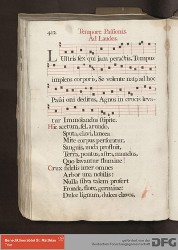 412
Tempore Passionis
Ad Laudes
LUstris sex qui jam peractis, Tempus
implens corporis, Se volente natus ad hoc
Passioni deditus, Agnus in crucis leva-
tur Immolandus stipite.
Hic acetum, fel, arundo,
Sputa, clavi, lancea:
Mite corpus perforatur,
Sanguis, unda profluit,
Terra, pontus, astra, mundus,
Quo lavantur flumine!
Crux fidelis inter omnes
Arbor una nobilis:
Nulla silva talem profert
Fronde, flore, germine:
Dulce lignum, dulces clavos,
DFG